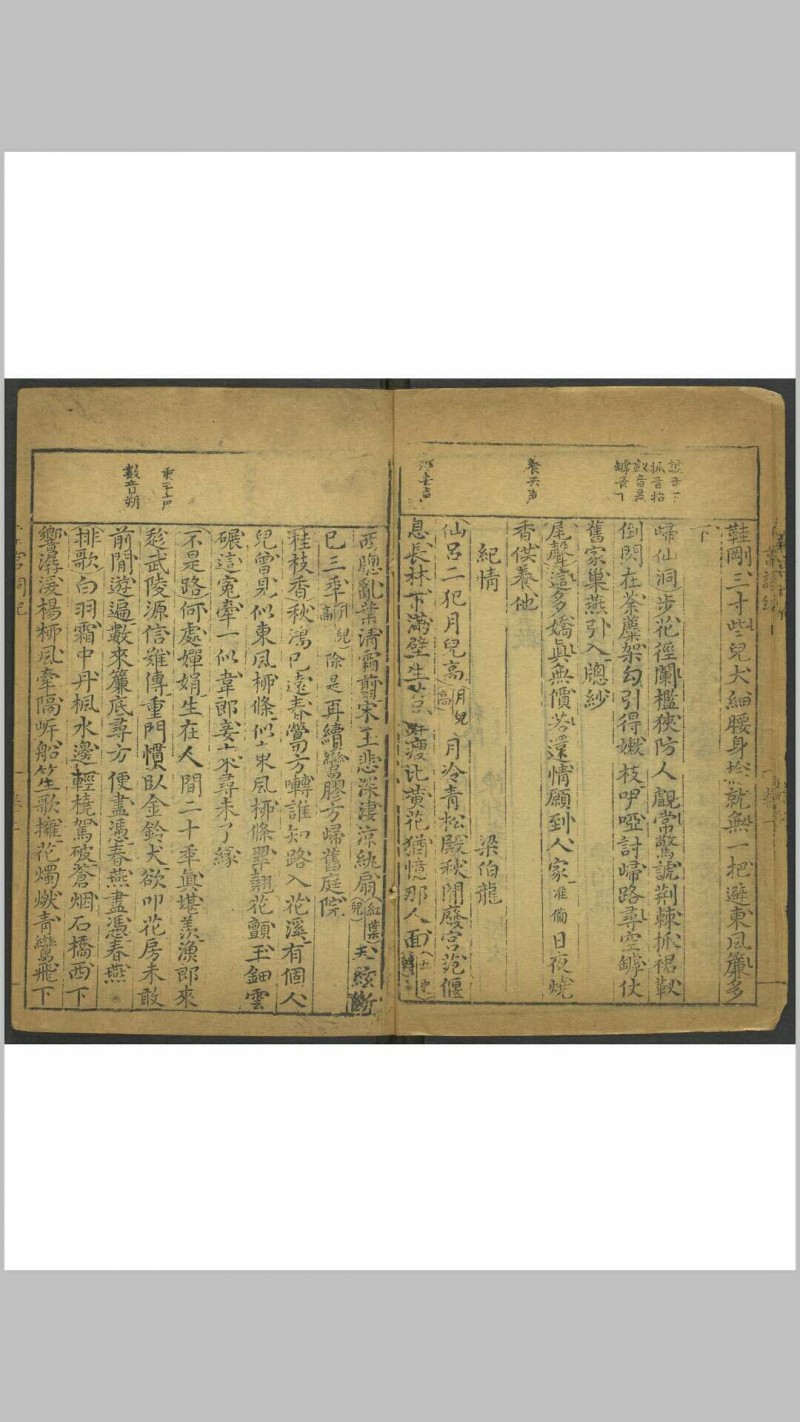 鞋剛三寸些兒大細腰身捴就無一把避東風簾多
下
歸仙洞步花徑闌檻狹防人覷常驚諕荆棘抓裙釵
倒閃在荼䕷架勾引得嫩枝咿啞討歸路尋空罅仗
舊家巢燕引入牕紗
尾聲這多嬌真無價若還情願到人家准備日夜燒
香供養他
紀情
梁伯龍
仙呂二犯月兒高 月兒高 月冷青松殿秋閒廢宮苑偃
息長林下滿壁生苔 瘦比黄花猶憶那人面
西牕亂葉清霜剪宋玉悲深淒凉紈扇 紅葉兒 天絃斷
已三年 月兒高 除是再續鸞膠方歸舊庭院
桂枝香秋鴻已遠春鶯方囀誰知路入花溪有個人
兒曾見似東風柳條似東風柳條翠翹花顫玉鈿雲
碾這冤牽一似韋郎妾來尋未了緣
不是路何處嬋娟生在人間二十年真堪羨漁郎來
趁武陵源信難傳重門慣臥金鈴犬欲叩花房未敢
前閒遊遍數來簾底尋方便盡憑春燕盡憑春燕
排歌白羽霜中丹楓水邊輕橈駕破蒼烟石橋西下
響潺湲楊柳風牽隔岍船笙歌擁花燭燃青鸞飛下
抓音招
罅音下
養去声
數音朔
重平声